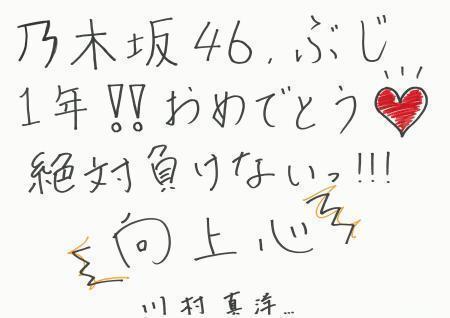 乃木坂46、ぶじ
1年!!おめでとう
絶対負けないっ!!!
向上心
川村真洋…